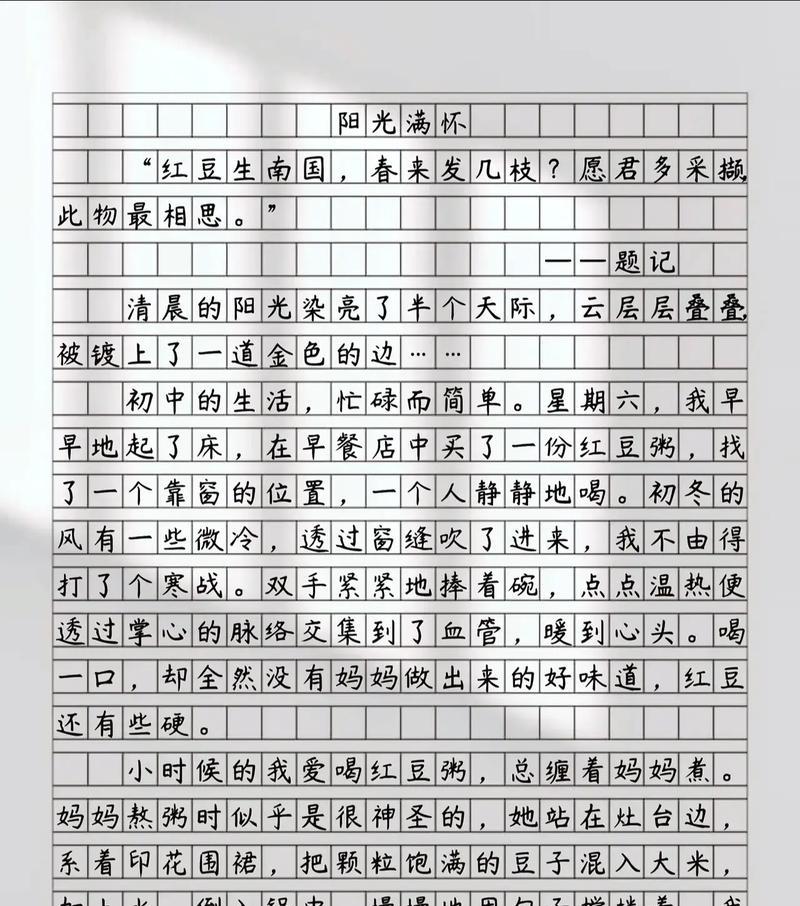 阳光满怀
“红豆生南国，春来发几枝？愿君多采撷，
此物最相思。”
——题记
清晨的阳光染亮了半个天际，云层层叠叠，
被镀上了一道金色的边……
初中的生活，忙碌而简单。星期六，我早
早地起了床，在早餐店中买了一份红豆粥，找
了一个靠窗的位置，一个人静静地喝。初冬的
风有一些微冷，透过窗缝吹了进来，我不由得
打了个寒战。双手紧紧地捧着碗，点点温热便
透过掌心的脉络交集到了血管，暖到心头。喝
一口，却全然没有妈妈做出来的好味道，红豆
还有些硬。
小时候的我爱喝红豆粥，总缠着妈妈煮。
妈妈熬粥时似乎是很神圣的，她站在灶台边，
系着印花围裙，把颗粒饱满的豆子混入大米，